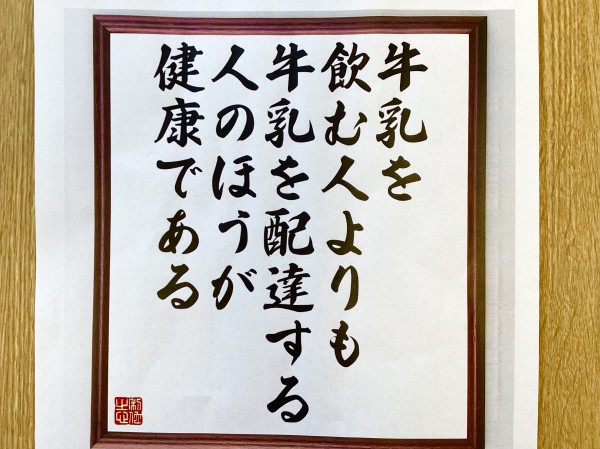 牛乳を
飲む人よりも
牛乳を配達する
人のほうが
健康である